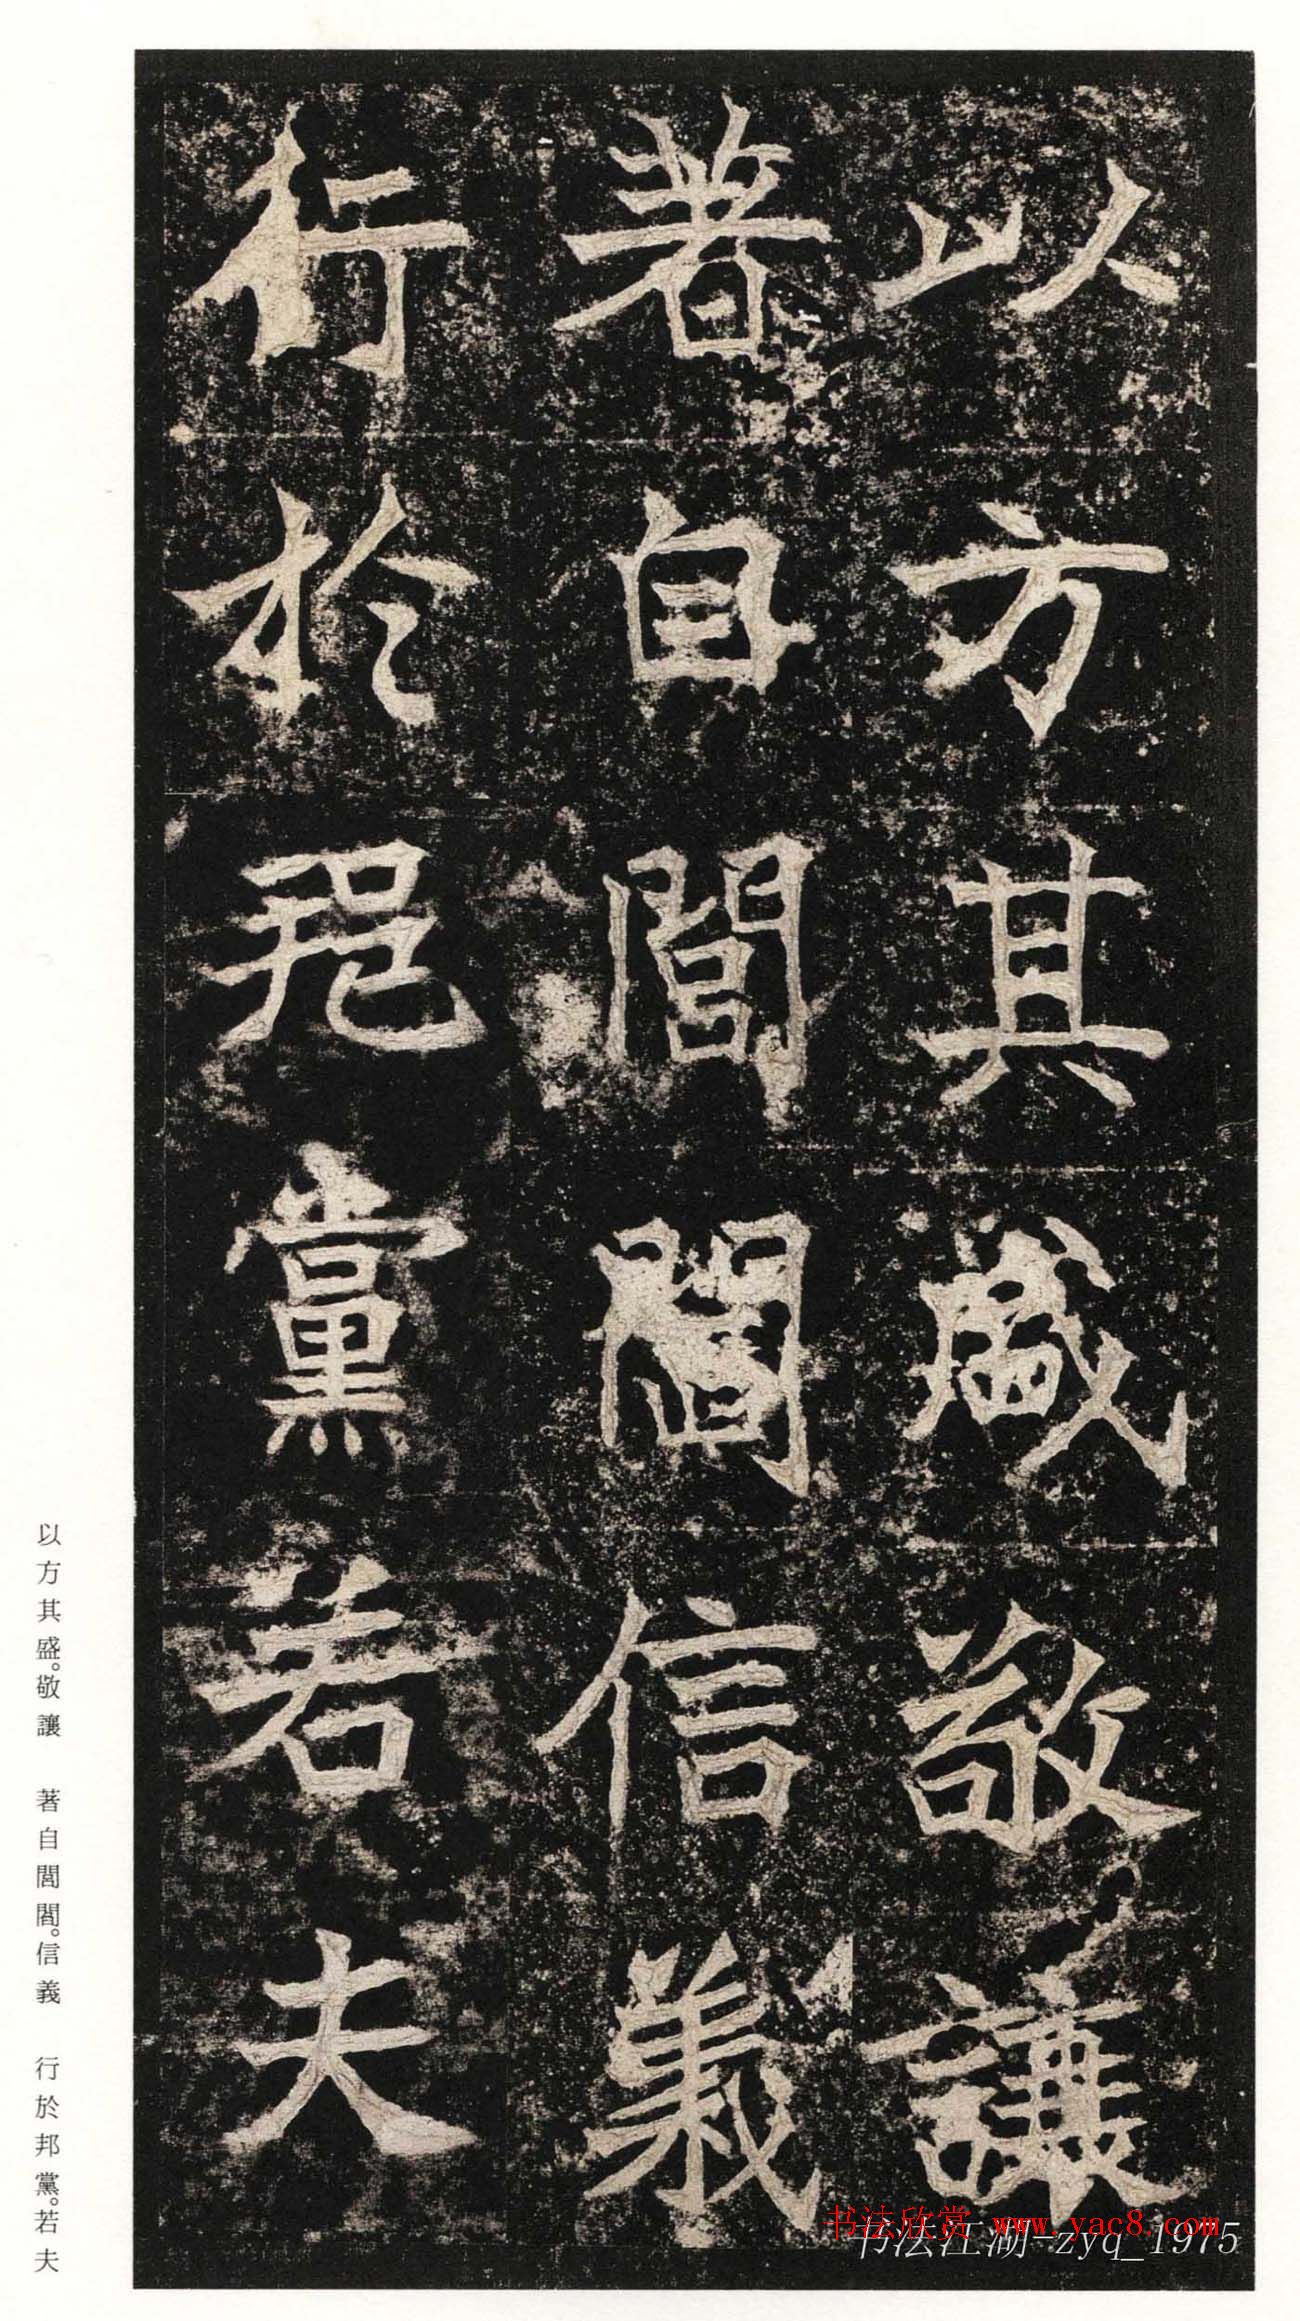 以方其盛敬讓
著自閭閻信義
行於邦黨若夫
以方其盛。敬讓　著自閭閻。信義　行於邦黨。若夫
书法欣赏 www.yac8.com
书法江湖-zyq_1975